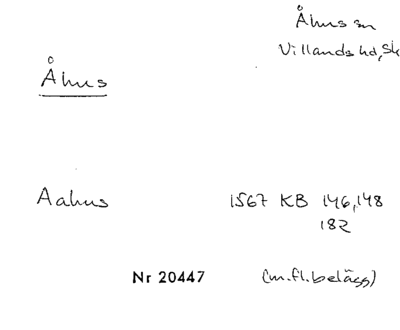 Åhus sn
Villands hd, Sk
Åhus
Aahus 1567 KB 146, 148
182
Nr 20447 (m.fl. belägg)